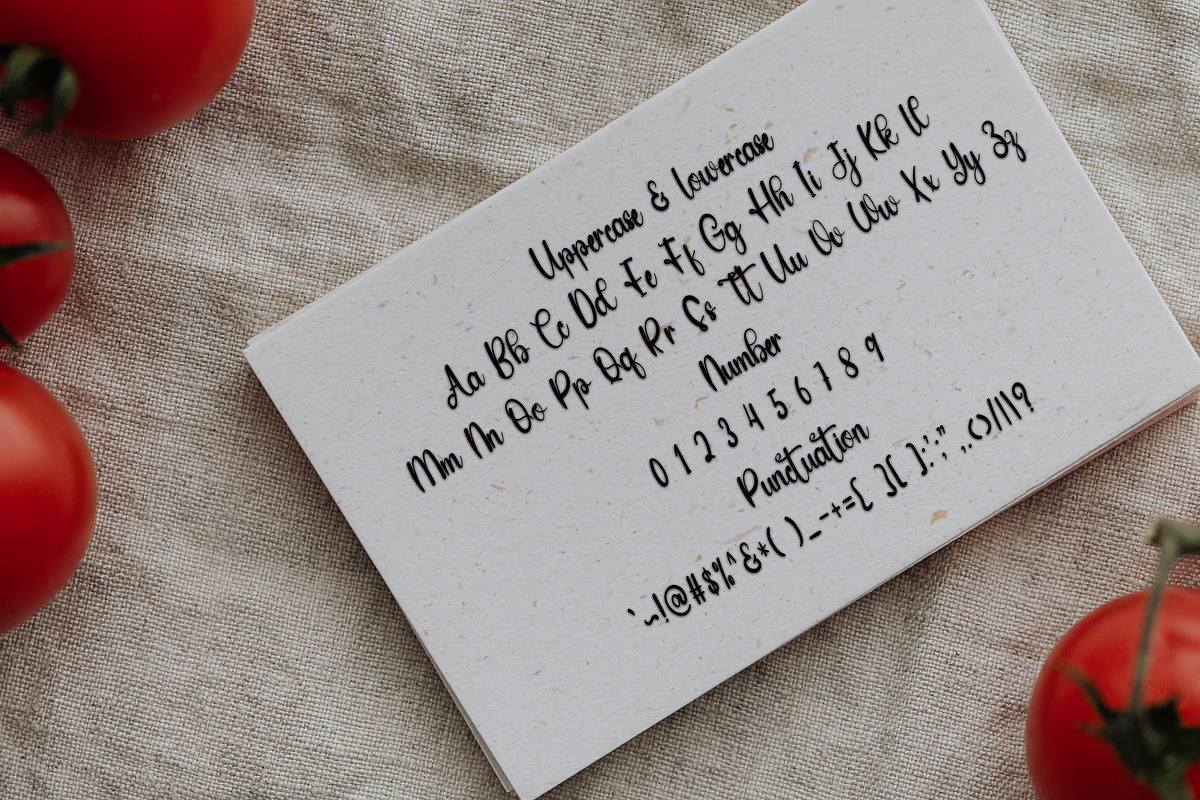 Uppercase & lowercase
Aa Bb Cc Dd Ee Ff Gg Hh Ii Jj Kk Ll
Mm Nn Oo Pp Qq Rr Ss Tt Uu Vv Ww Xx Yy Zz
Number
0 1 2 3 4 5 6 7 8 9
Punctuation
`~!@#$%^&*( )_-+={ }[ ]:';" ,.<>/|\?